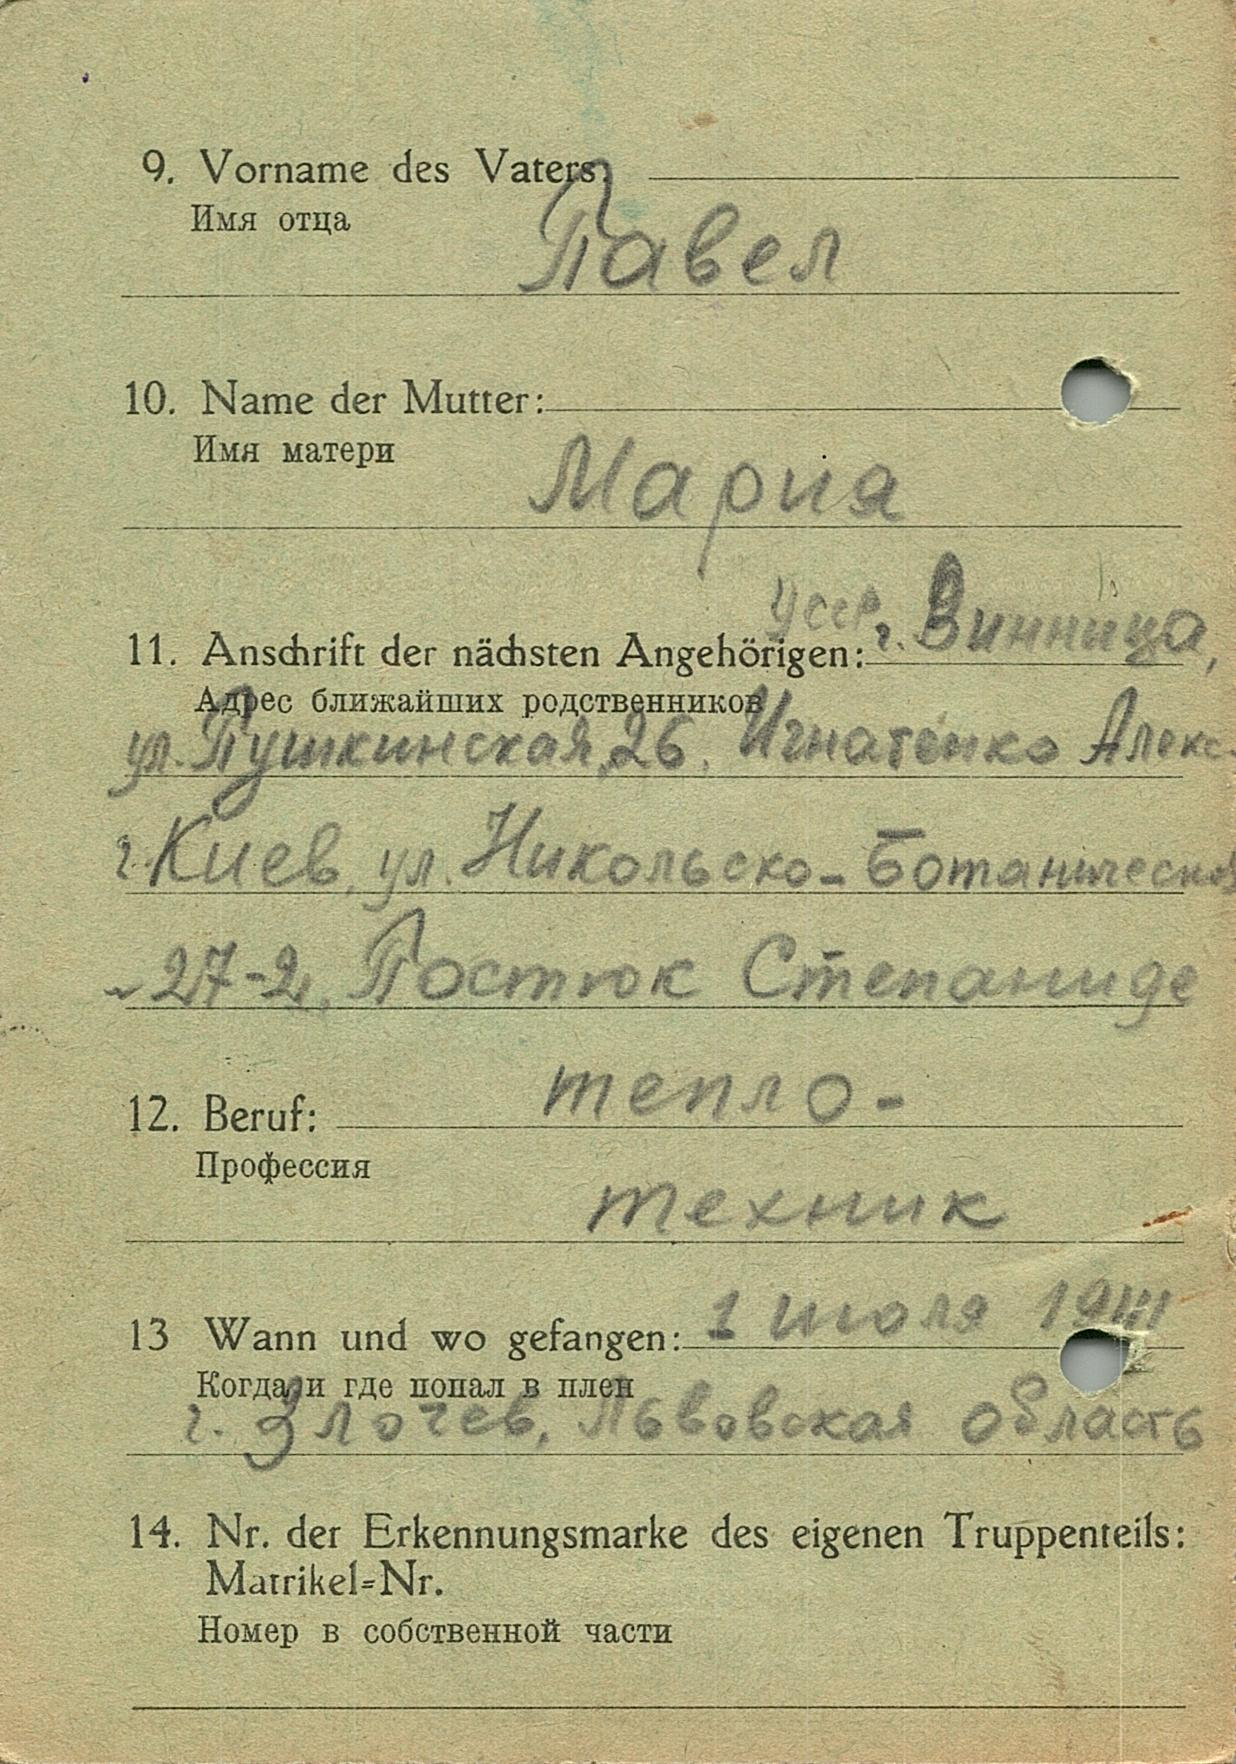 9. Vorname des Vaters:
Имя отца
Павел
10. Name der Mutter:
Имя матери
Мария
усср. г. Винница,
11. Anschrift der nächsten Angehörigen:
Адрес ближайших родственников
ул. Пушкинская, 26. Игнатенко Алекс.
г. Киев, ул. Никольско-Ботаническая
27-2, Постюк Степаниде
тепло-
12. Beruf:
Профессия
техник
13 Wann und wo gefangen: 1 июля 1941
Когда и где попал в плен
г. Злочев, Львовская область
14. Nr. der Erkennungsmarke des eigenen Truppenteils:
Matrikel=Nr.
Номер в собственной части